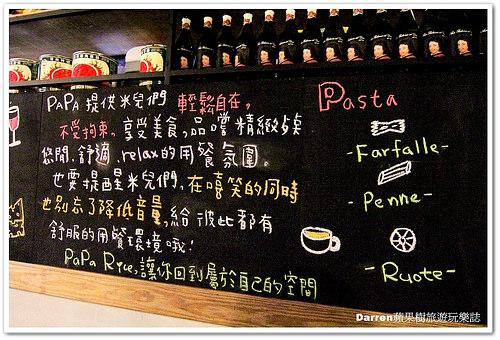 PAPA 提供米兒們 輕鬆自在,
不受拘束, 享受美食,品嚐精緻
悠閒.舒適.relax的用餐氛圍.
也要提醒米兒們,在嘻笑的同時
也別忘了降低音量,給彼此都有
舒服的用餐環境哦!
PaPa Rice,讓你回到屬於自己的空間
Pasta
-Farfalle-
-Penne-
-Ruote-
Darren蘋果樹旅遊玩樂誌